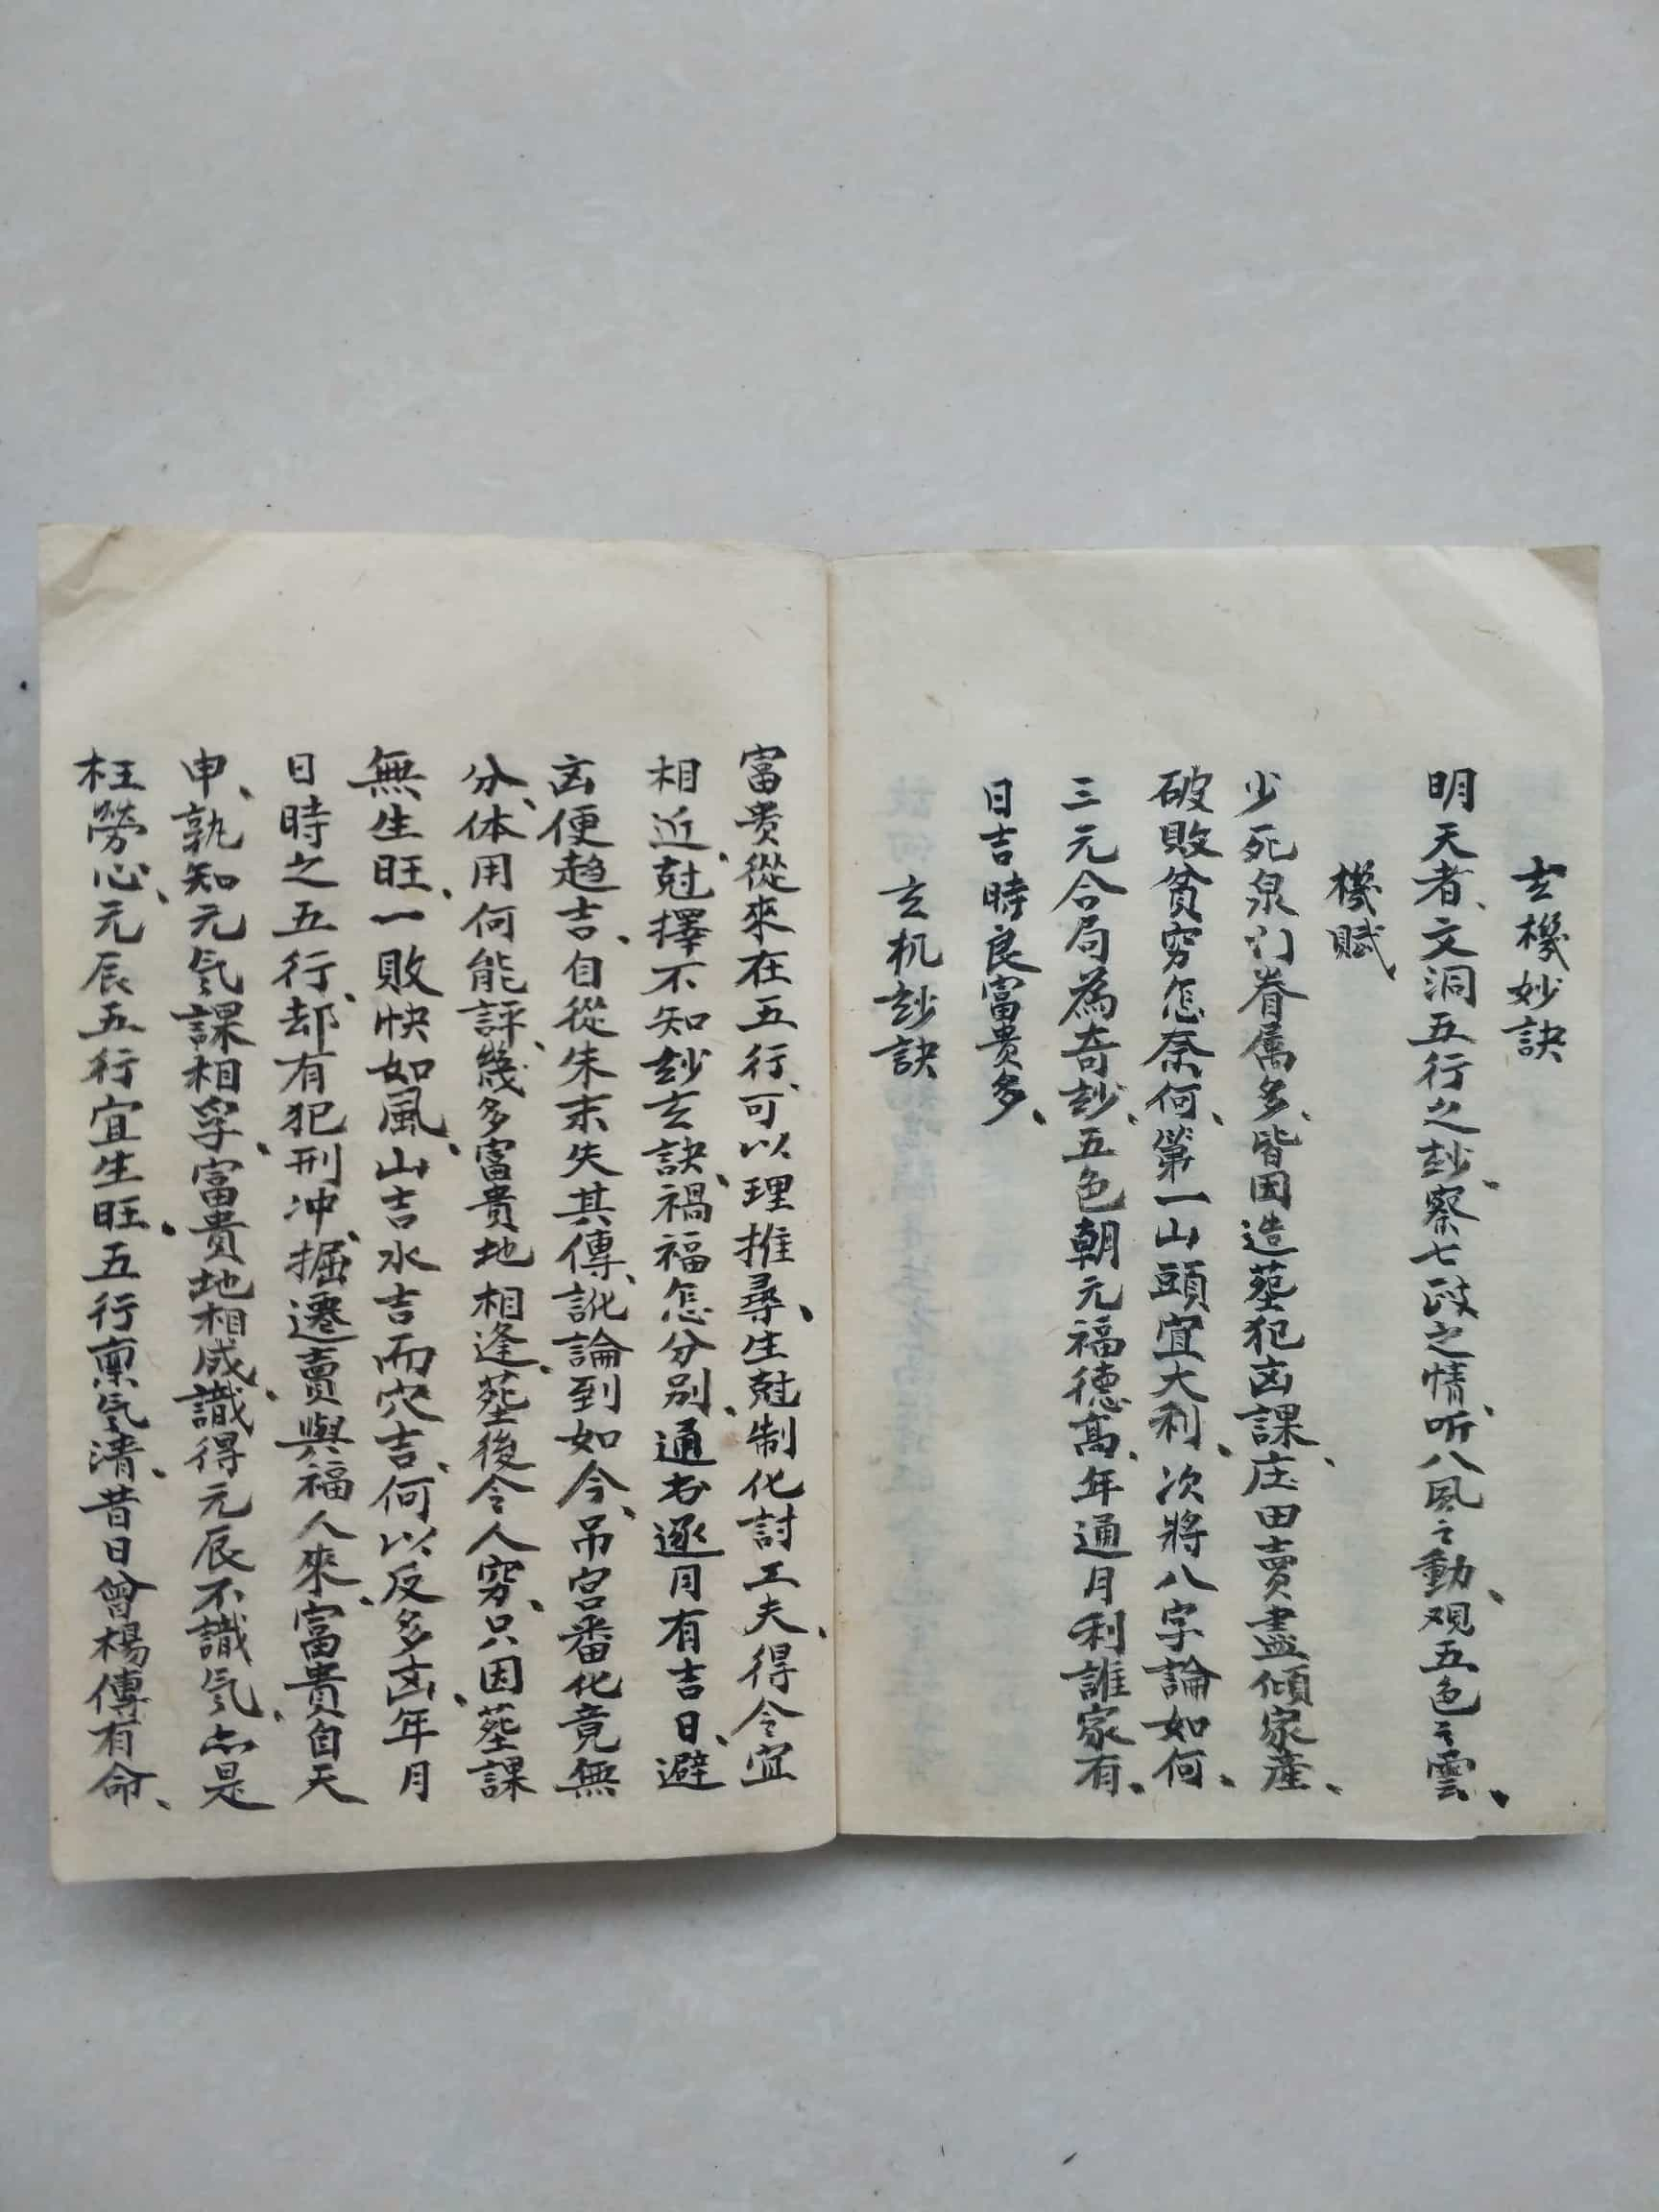 玄機妙訣
明天者、文洞五行之玅、察七政之情、听八風之動、观五色之雲、
機賦
少死泉门眷属多、皆因造葬犯凶課、庄田賣盡傾家產、
破敗貧窮怎奈何、第一山頭宜大利、次將八字論如何、
三元合局為奇玅、五色朝元福德高、年通月利誰家有、
日吉時良富贵多、
玄机玅訣
富贵從來在五行、可以理推尋、生尅制化討工夫、得令宜
相近、尅擇不知玅玄訣、禍福怎分别、通书逐月有吉日、避
凶便趋吉、自從朱末失其傳、訛論到如今、吊宮番化竟無
分、体用何能評、幾多富貴地相逢、葬後令人窮、只因葬課
無生旺、一敗快如風、山吉水吉而穴吉、何以反多凶、年月
日時之五行、却有犯刑冲、掘遷賣與福人來、富貴自天
申、孰知元氣課相孚、富貴地相成、識得元辰不識氣、亦是
枉勞心、元辰五行宜生旺、五行禀氣清、昔日曾楊傳有命、